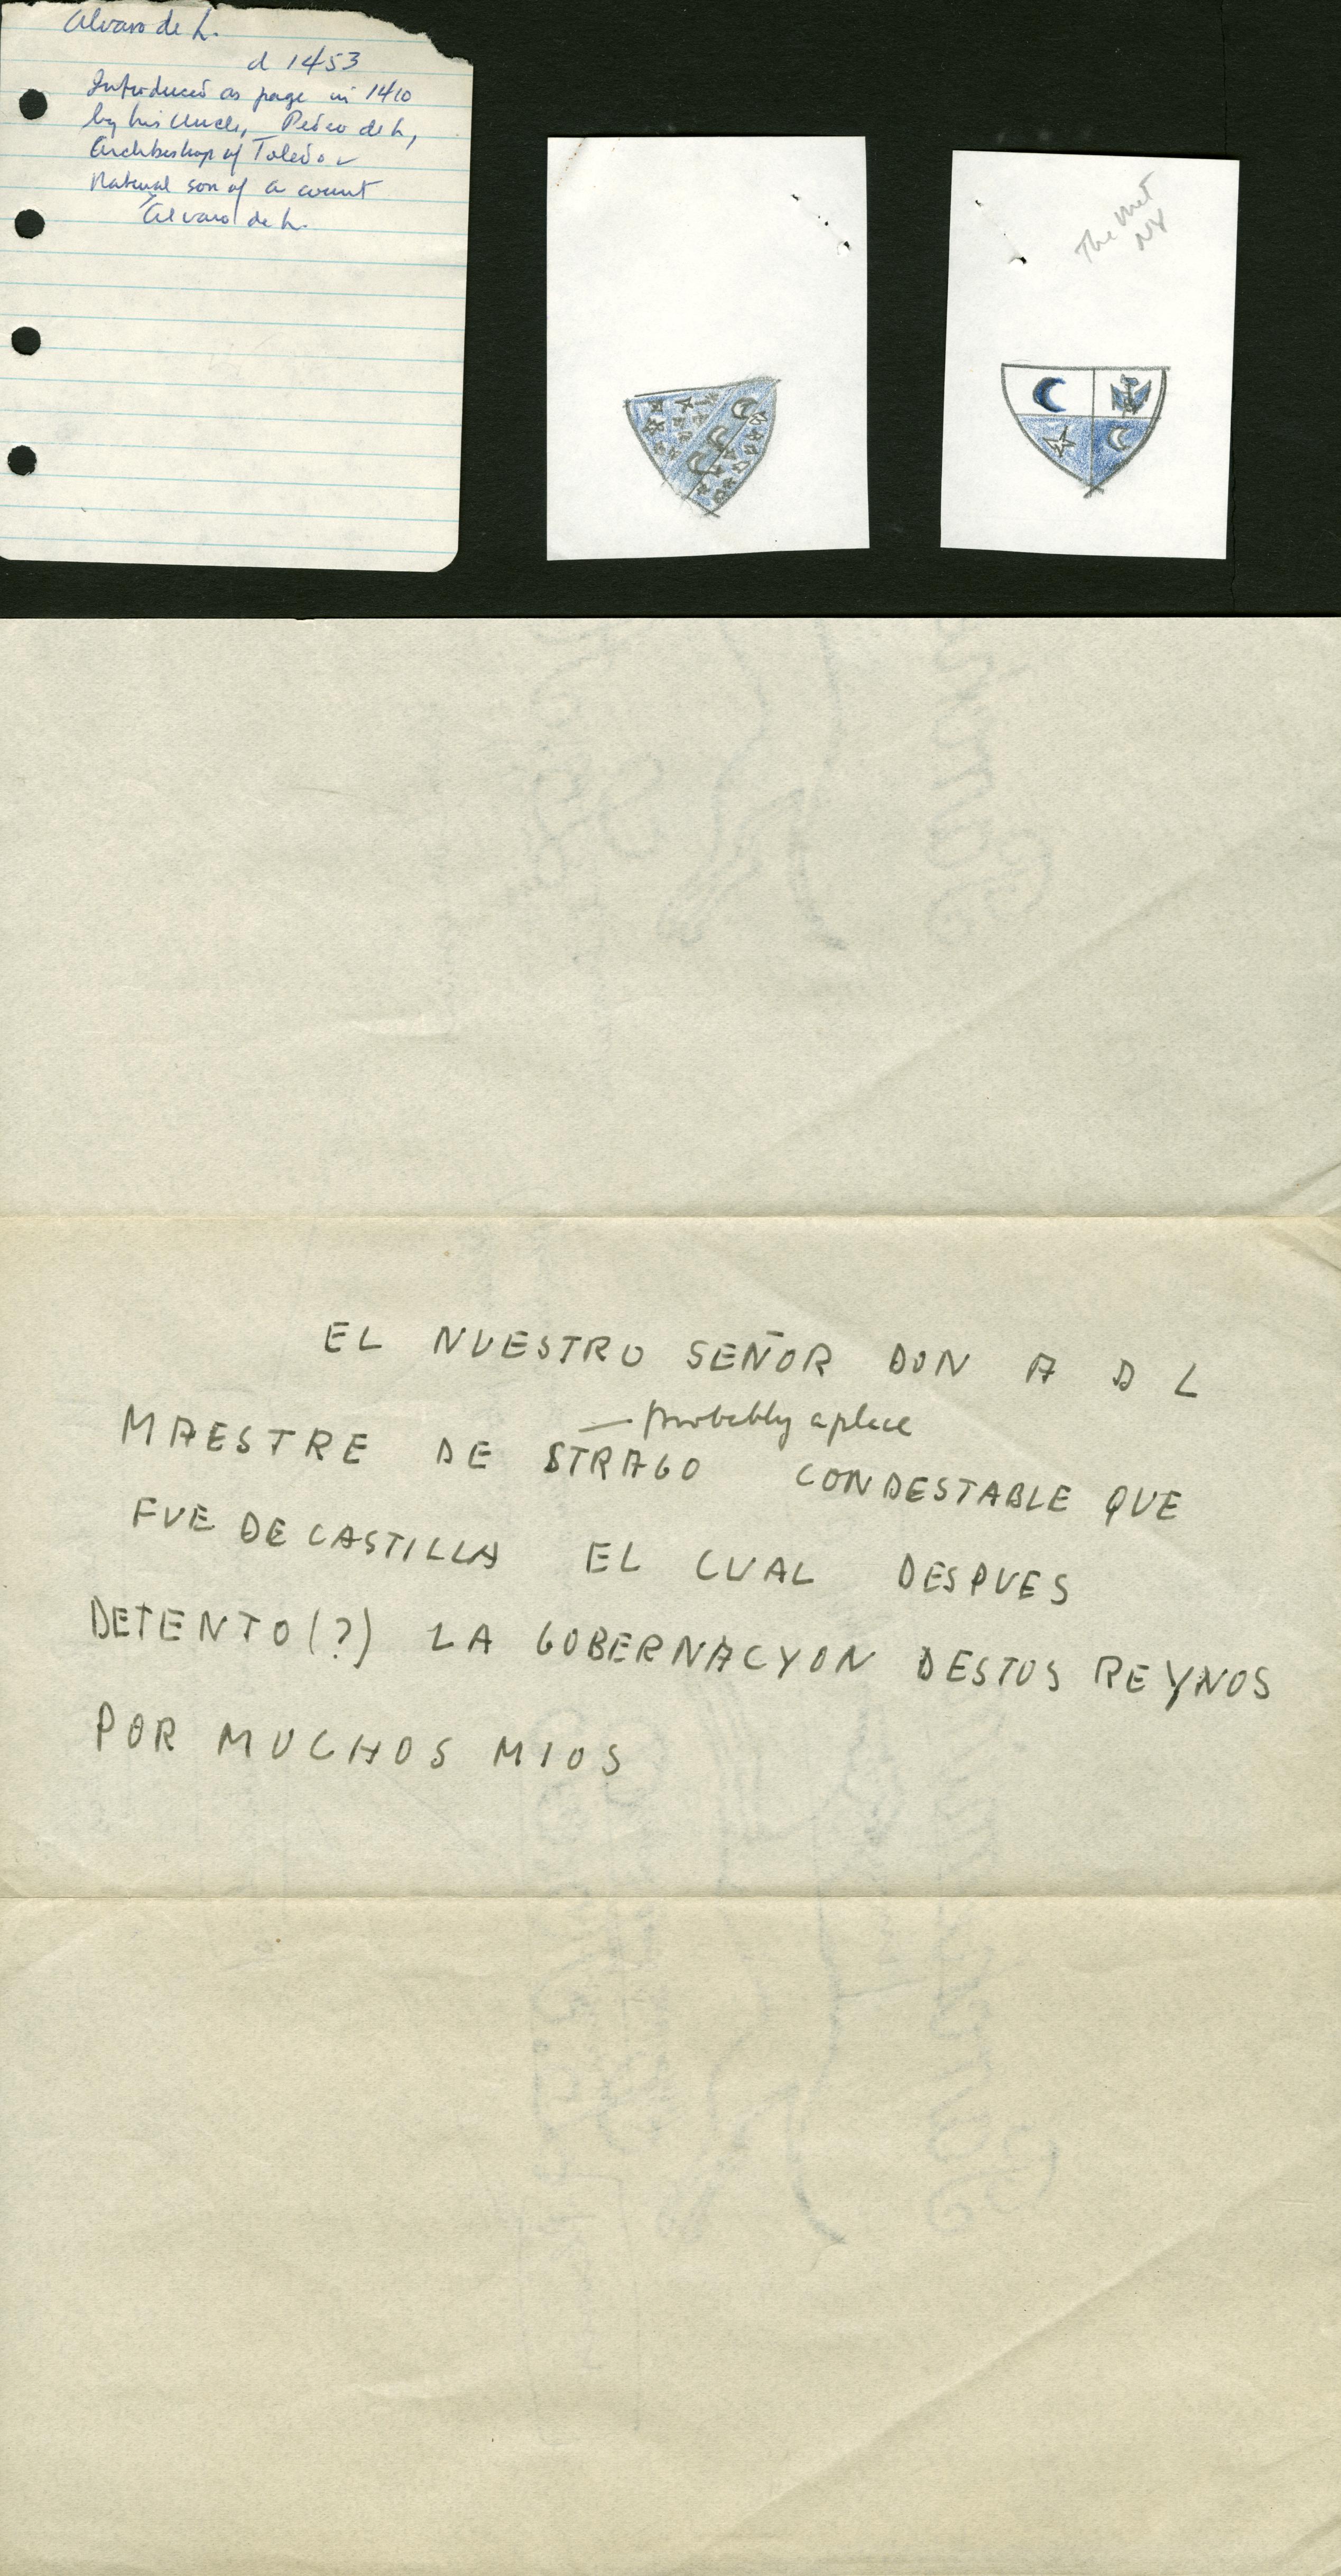 Alvaro de L.
d 1453
Introduced as page in 1410
by his Uncle, Pedro de L,
Archbishop of Toledo
Natural son of a count
Alvaro de L.
The Met
NY
EL NUESTRO SEÑOR DON A D L
— probably a place
MAESTRE DE STRAGO CONDESTABLE QUE
FUE DE CASTILLA EL CUAL DESPUES
DETENTO(?) LA GOBERNACYON DESTOS REYNOS
POR MUCHOS MIOS